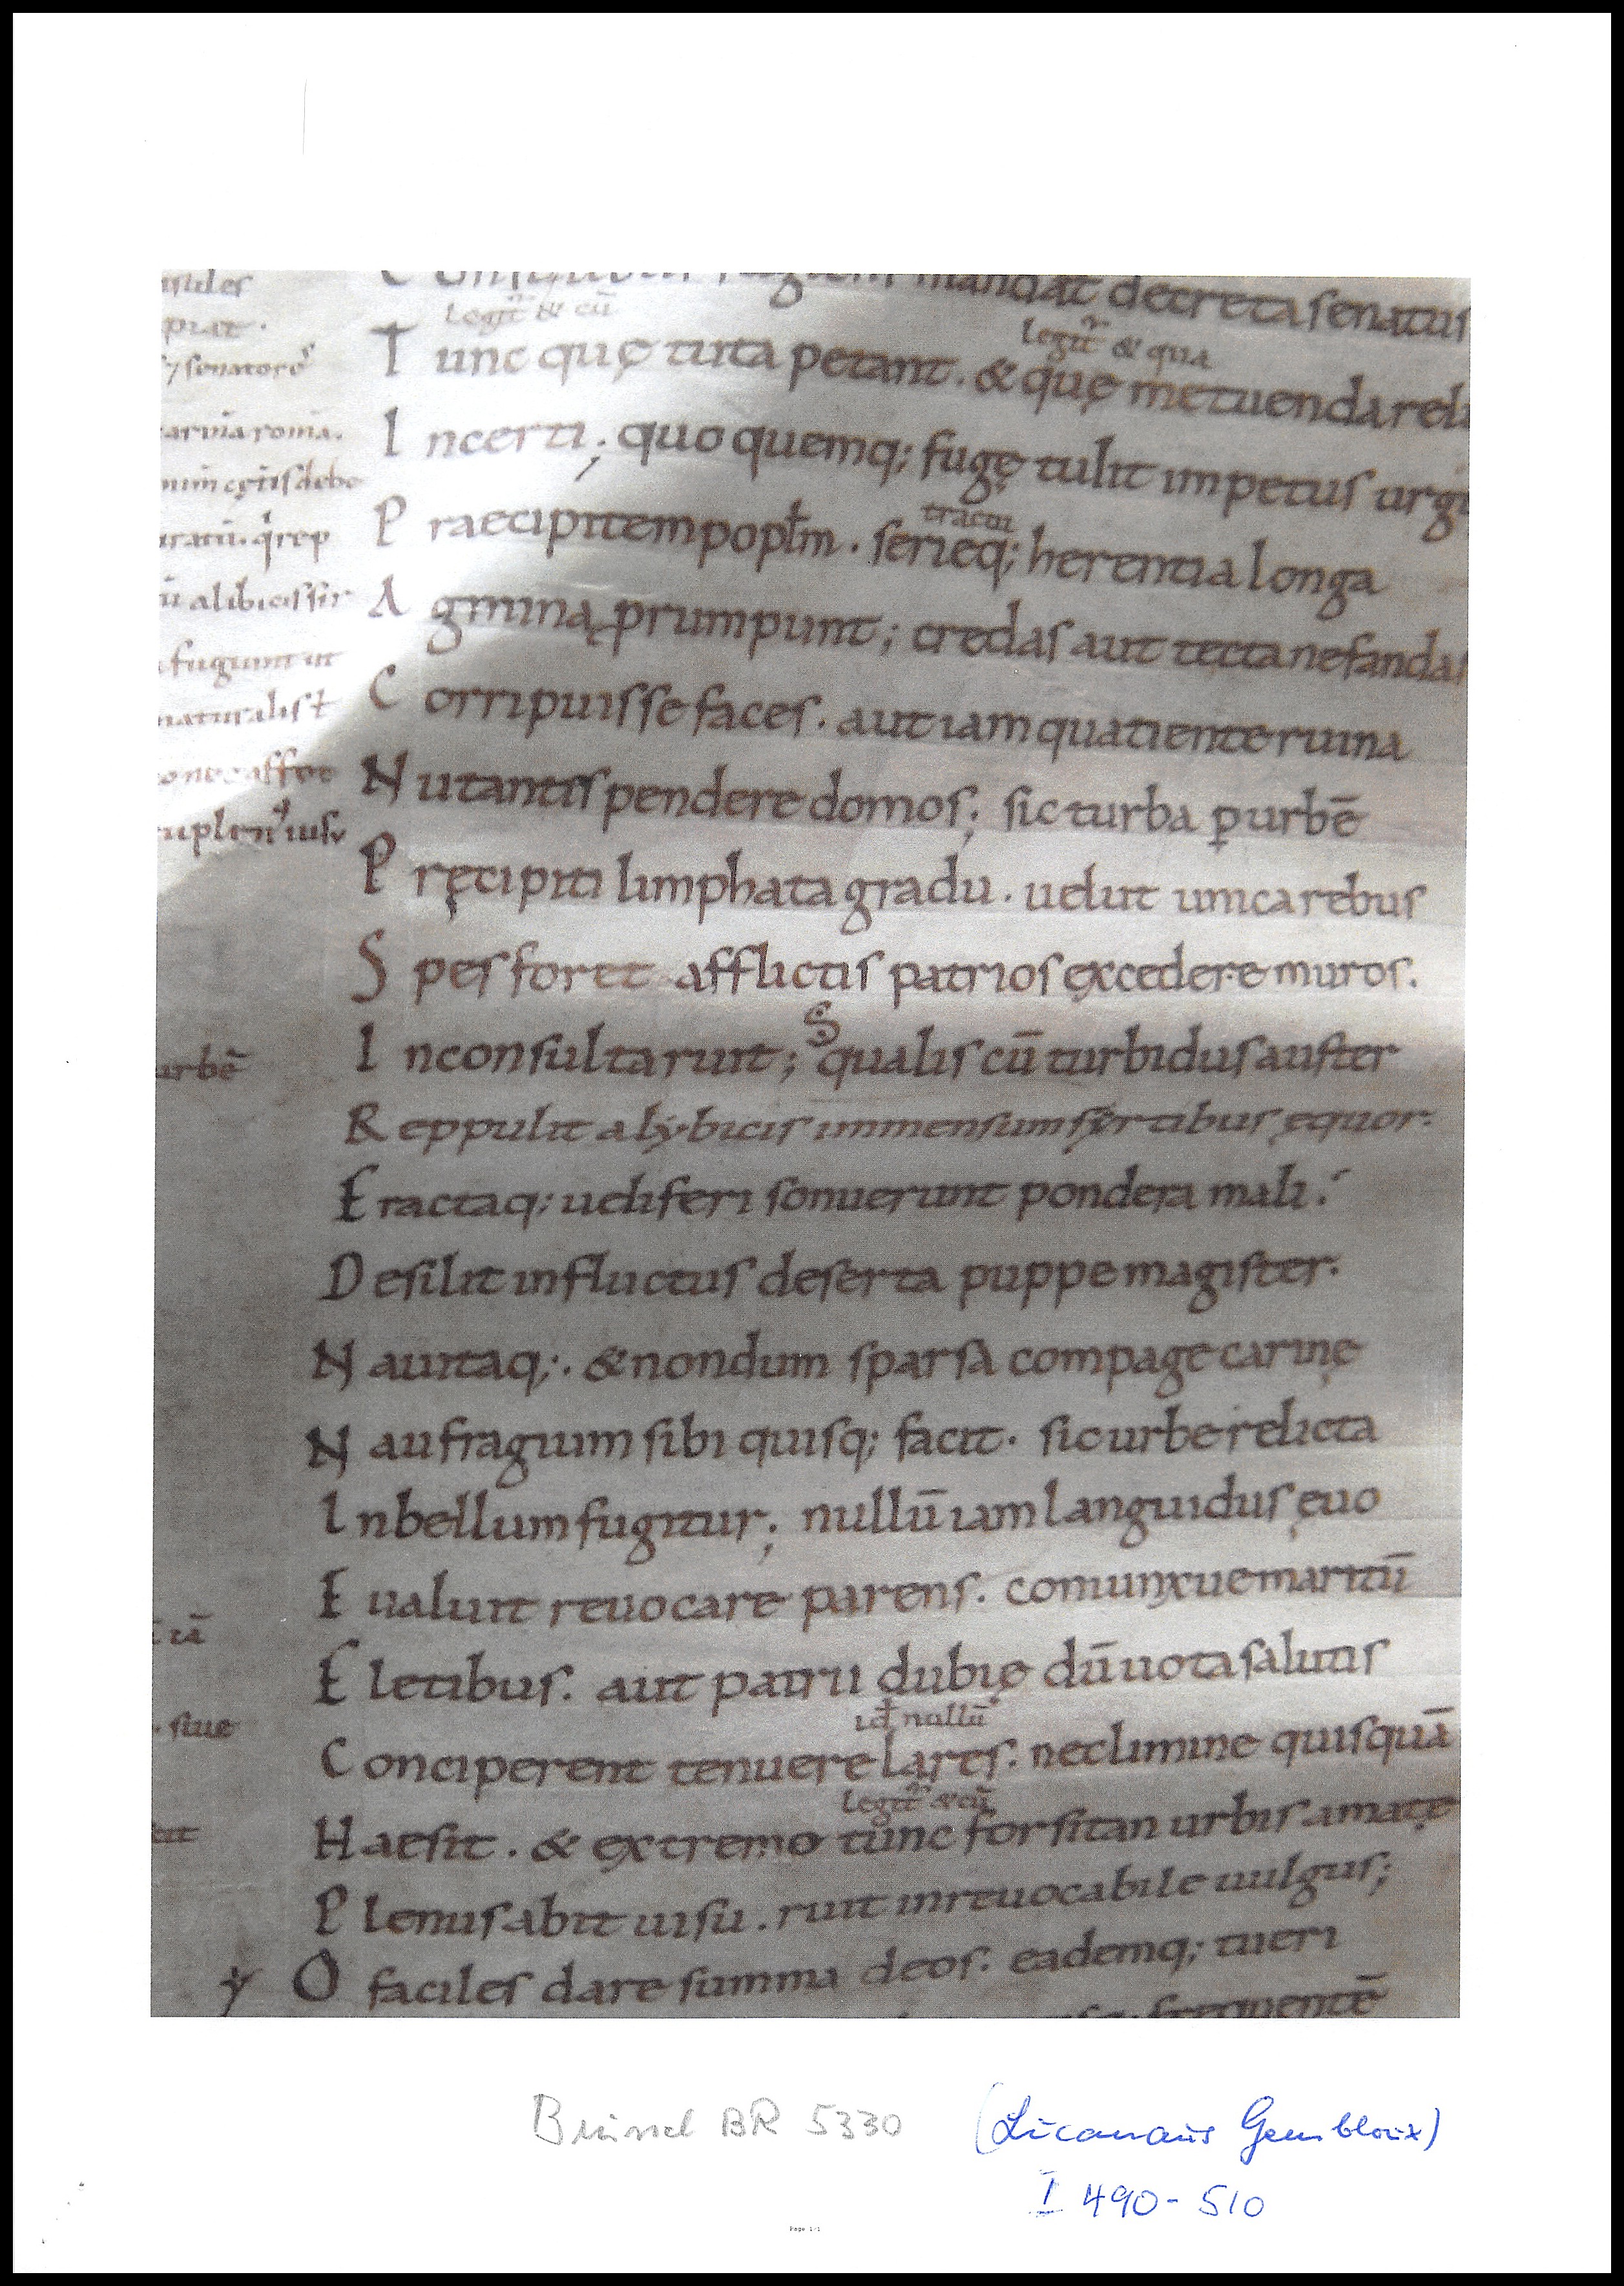 mandat decreta senatus
Legit̃ & cū
Legit̃ & qua
Tunc quę tuta petant. & quę metuenda reli
Incerti; quo quemq; fugę tulit impetus urgu
tractu
Praecipitem popl̃m. serieq; herentia longa
Agminą prumpunt; credas aut tecta nefandas
Corripuisse faces. aut iam quatiente ruina
Nutantis pendere domos; sic turba ꝑ urbē
Pręcipiti limphata gradu. uelut unica rebus
Spes foret afflictis patrios excedere muros.
Inconsulta ruit; qualis cū turbidus auster
Reppulit a lẏbicis immensum sẏrtibus ęquor.
Fractaq; ueliferi sonuerunt pondera mali.
Desilit in fluctus deserta puppe magister.
Nauitaq;. & nondum sparsa compage carinę
Naufragium sibi quisq; facit. sic urbe relicta
In bellum fugitur; nullū iam languidus ęuo
Eualuit reuocare parens. coniunxue maritū
Fletibus. aut patrii dubię dū uota salutis
id nullū
Conciperent tenuere lares. nec limine quisquā
Legit̃ & cū
Haesit. & extremo tunc forsitan urbis amatę
Plenus abit uisu. ruit inreuocabile uulgus;
O faciles dare summa deos. eademq; tueri
frequentē
sules
piat.
senatores
aruia roma.
fugiunt ut
naturalis
urbē
siue
Brüssel BR 5330 (Lucanaus Gembloux)
I 490-510
Page 1/1